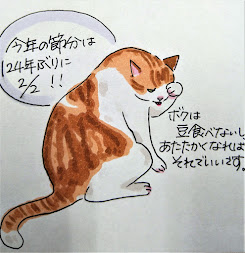 今年の節分は
124年ぶりに
2/2 !!
ボクは
豆食べないし
あたたかくなれば
それでいいさ。